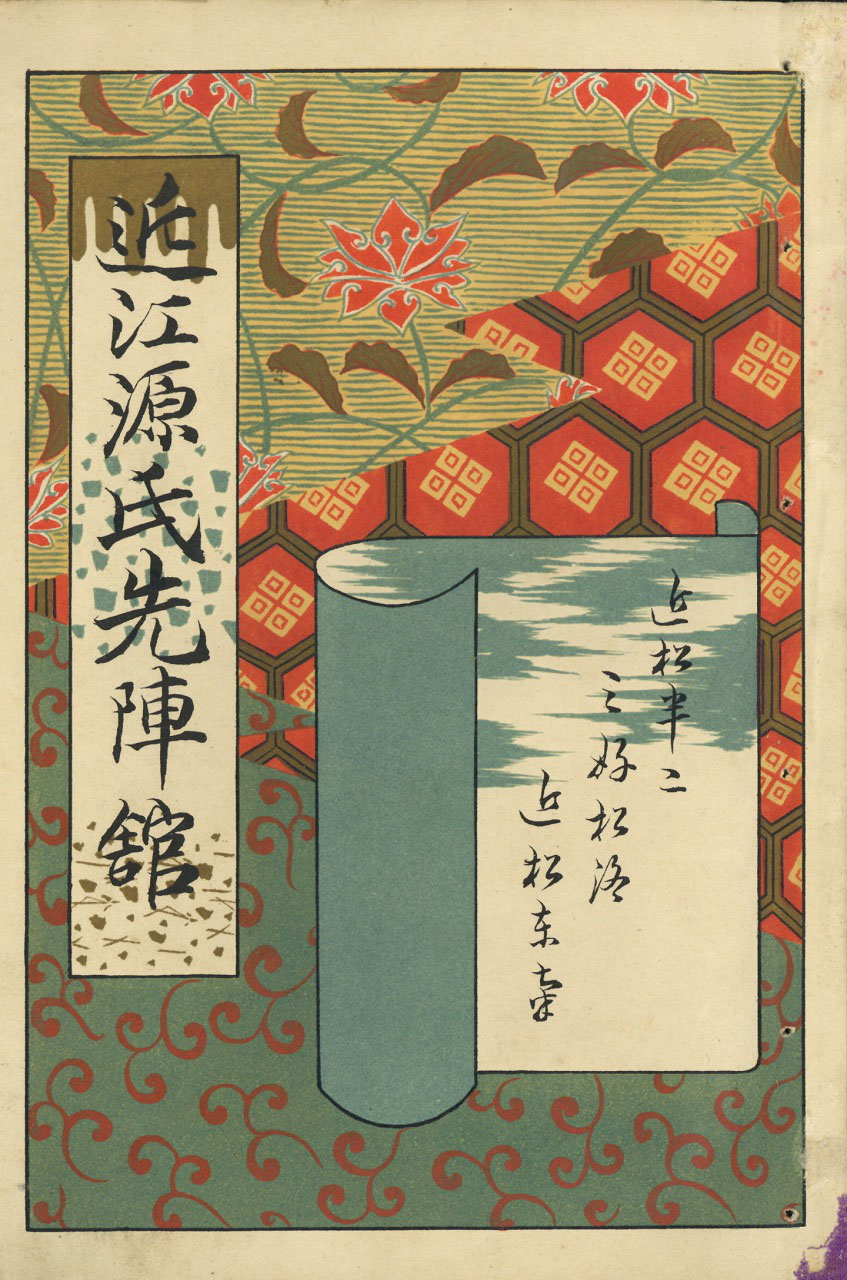 近松半二
三好松洛
近松東南
近江源氏先陣舘